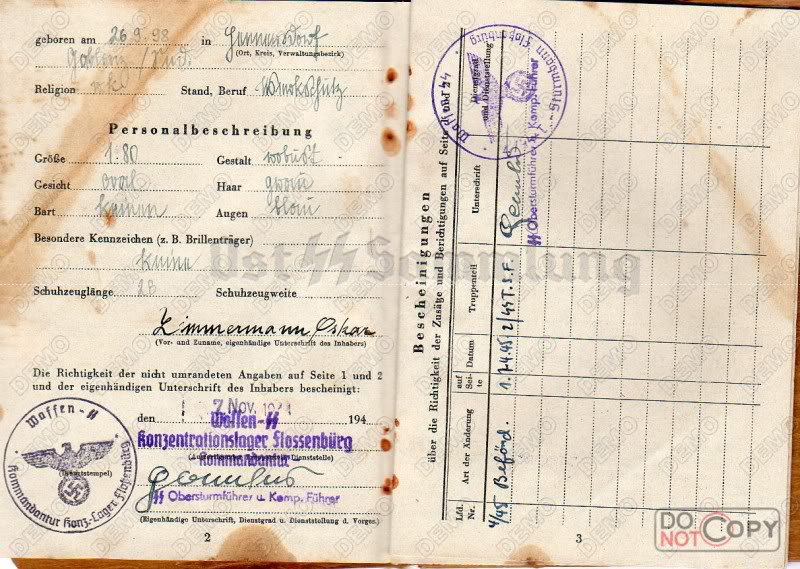 geboren am 26.9.98 in Hennersdorf
(Ort, Kreis, Verwaltungsbezirk)
Religion rkl Stand, Beruf Werkschütz
Personalbeschreibung
Größe 1.80 Gestalt robust
Gesicht oval Haar grau
Bart keinen Augen blau
Besondere Kennzeichen (z. B. Brillenträger)
keine
Schuhzeuglänge 28 Schuhzeugweite
Zimmermann, Oskar
(Vor- und Zuname, eigenhändige Unterschrift des Inhabers)
Die Richtigkeit der nicht umrandeten Angaben auf Seite 1 und 2
und der eigenhändigen Unterschrift des Inhabers bescheinigt:
den 7. Nov. 194
Waffen-SS
Konzentrationslager Flossenbürg
Kommandantur
SS Obersturmführer u. Komp. Führer
(Eigenhändige Unterschrift, Dienstgrad u. Dienststellung d. Vorges.)
Waffen-SS
Kommandantur Konz.-Lager Floßenbürg
(Dienststempel)
2
Bescheinigungen
über die Richtigkeit der Zusätze und Berichtigungen auf Seite
Lfd. Nr.
Art der Änderung
auf Seite
Datum
Truppenteil
Unterschrift
Dienstgrad und Dienststellung
4/45 Beförd. 1. 1.4.45 2/SS T.S.F.
SS Obersturmführer u. Komp. Führer
Sturmbann Floßenbürg
3
Ost SS Sammlung
DEMO
DO NOT COPY